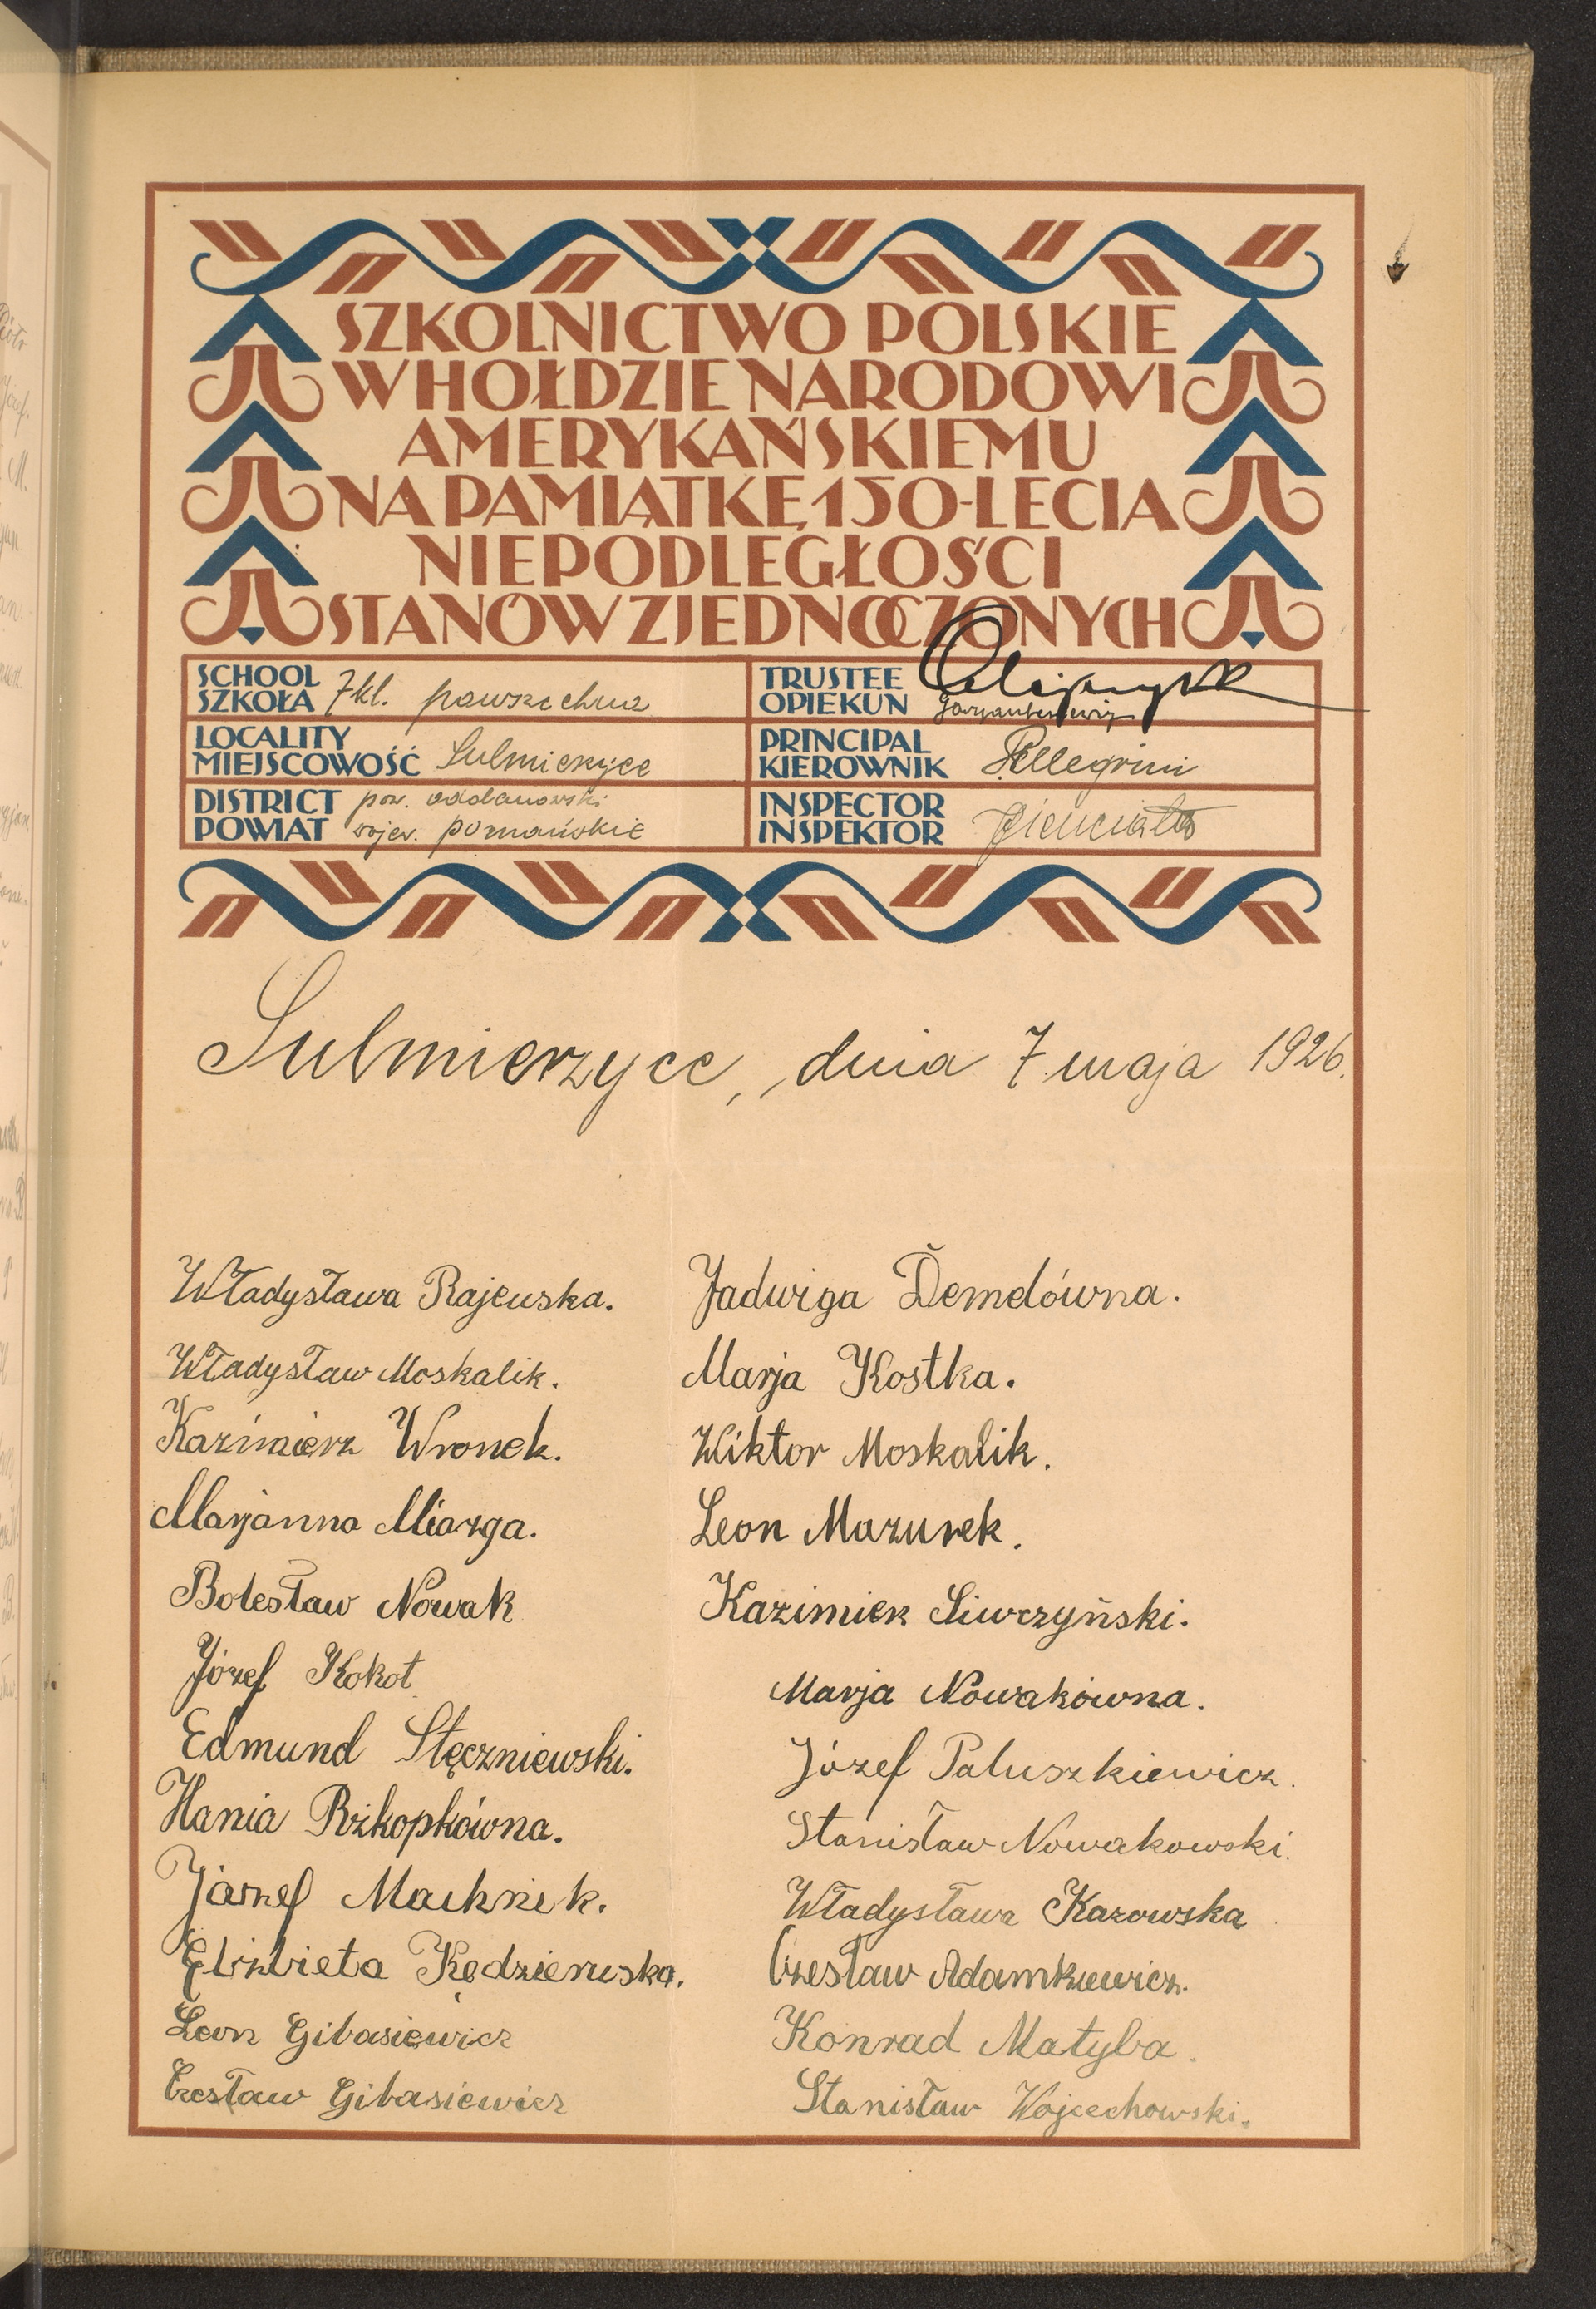 SZKOLNICTWO POLSKIE
W HOŁDZIE NARODOWI
AMERYKAŃSKIEMU
NA PAMIĄTKĘ 150-LECIA
NIEPODLEGŁOŚCI
STANÓW ZJEDNOCZONYCH
SCHOOL
SZKOŁA 7 kl. powszechna
LOCALITY
MIEJSCOWOŚĆ Sulmierzyce
DISTRICT pow. odolanowski
POWIAT wojew. poznańskie
TRUSTEE
OPIEKUN
PRINCIPAL
KIEROWNIK Pellegrini
INSPECTOR
INSPEKTOR Pienciałło
Sulmierzyce, dnia 7 maja 1926.
Władysława Rajewska.
Władysław Moskalik.
Kazimierz Wronek.
Marjanna Miazga.
Bolesław Nowak
Józef Kokot
Edmund Stęczniewski.
Hania Rzkopkówna.
Józef Machnik.
Elżbieta Kędzierska.
Leon Gibasiewicz
Czesław Gibasiewicz
Jadwiga Demelówna.
Marja Kostka.
Wiktor Moskalik.
Leon Mazurek.
Kazimierz Siwczyński.
Marja Nowakówna.
Józef Paluszkiewicz.
Stanisław Nowakowski.
Władysława Kazowska
Czesław Adamkiewicz.
Konrad Matyba.
Stanisław Wojcechowski.